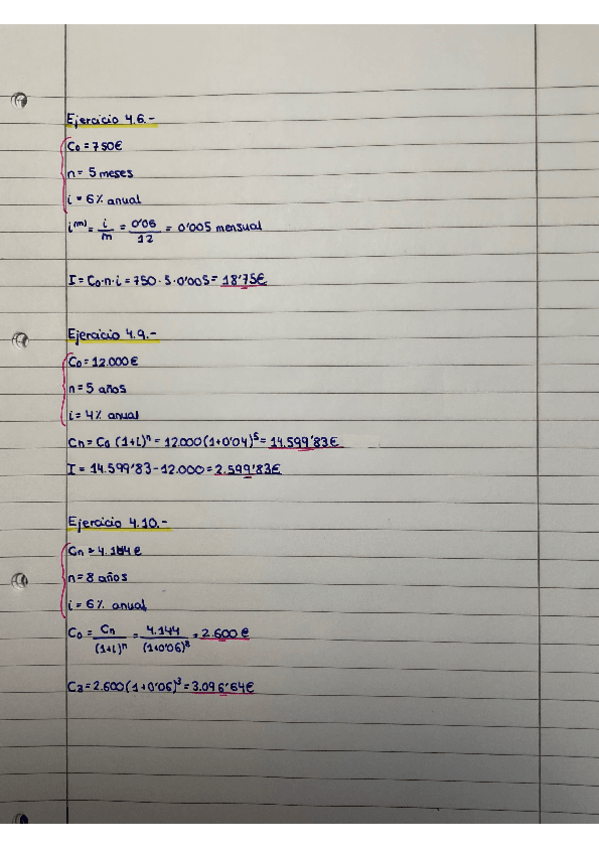 Ejercicio 4.6.-
C₀ = 750€
n = 5 meses
i = 6% anual
i⁽ᵐ⁾ = i/m = 0'06/12 = 0'005 mensual
I = C₀·n·i = 750 · 5 · 0'005 = 18'75€
Ejercicio 4.9.-
C₀ = 12.000€
n = 5 años
i = 4% anual
Cn = C₀ (1+i)ⁿ = 12.000(1+0'04)⁵ = 14.599'83€
I = 14.599'83 - 12.000 = 2.599'83€
Ejercicio 4.10.-
Cn = 4.144€
n = 8 años
i = 6% anual
C₀ = Cn/(1+i)ⁿ = 4.144/(1+0'06)⁸ = 2.600€
C₃ = 2.600(1+0'06)³ = 3.096'64€